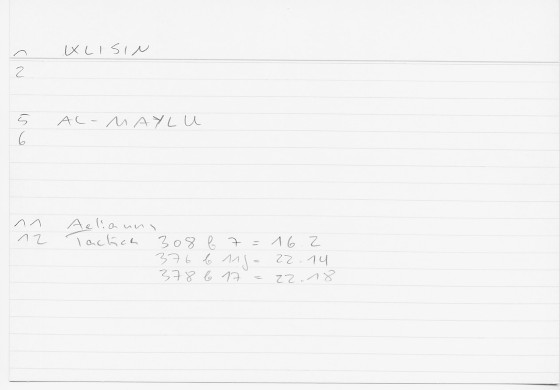 1 IXLISIN
2
5 AL-MAYLU
6
11 Aelianus
12 Tactica 308 b 7 = 16 2
376 b 11j = 22.14
378 b 17 = 22.18